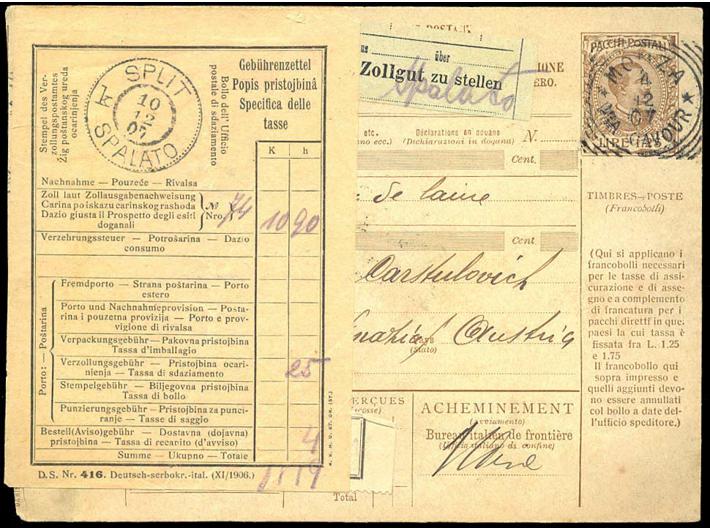 SPLIT
10
12
07
SPALATO
k
Stempel des Ver-
zollungspostamtes
Žig poštanskog ureda
ocarinjenja
Bollo dell'Ufficio
postale di sdaziamento
Gebührenzettel
Popis pristojbinâ
Specifica delle
tasse
K h
Nachnahme — Pouzeće — Rivalsa
Zoll laut Zollausgabenachweisung
Carina po iskazu carinskog rashoda
Dazio giusta il Prospetto degli esiti
doganali
№
Nro.
74
10 90
Verzehrungssteuer — Potrošarina — Dazio
consumo
Porto: — Poštarina
Fremdporto — Strana poštarina — Porto
estero
Porto und Nachnahmeprovision — Posta-
rina i pouzerna provizija — Porto e prov-
vigione di rivalsa
Verpackungsgebühr — Pakovna pristojbina
Tassa d'imballagio
Verzollungsgebühr — Pristojbina ocari-
njenja — Tassa di sdaziamento
25
Stempelgebühr — Biljegovna pristojbina
Tassa di bollo
Punzierungsgebühr — Pristojba za punci-
ranje — Tasse di saggio
Bestell(Aviso)gebühr — Dostavna (dojavna)
pristojbina — Tassa di recapito (d'avviso)
4
Summe — Ukupno — Totale
11 19
D. S. Nr. 416. Deutsch-serbokr.-ital. (XI/1906.)
über
Zollgut zu stellen
Spalato
IONE
ERO.
etc.
Déclarations en douane
(Dichiarazioni in dogana)
N.
Cent.
de laine
Cent.
Carstulovich
Austria
(Stato)
PACCHI POSTALI
MONZA
12
07
VIA CAVOUR
LIRE 1,25
TIMBRES-POSTE
(Francobolli)
(Qui si applicano i
francobolli necessari
per le tasse di assi-
curazione e di asse-
gno e a complemento
di francatura per i
pacchi diretti in que.
paesi la cui tassa è
fissata fra L. 1.25
e 1.75
Il francobollo qui
sopra impresso e
quelli aggiunti devo-
no essere annullati
col bollo a date del-
l'ufficio speditore.)
ERÇUES
ACHEMINEMENT
(Avviamento)
Bureau italien de frontière
(Ufficio italiano di confine)
Udine
Total